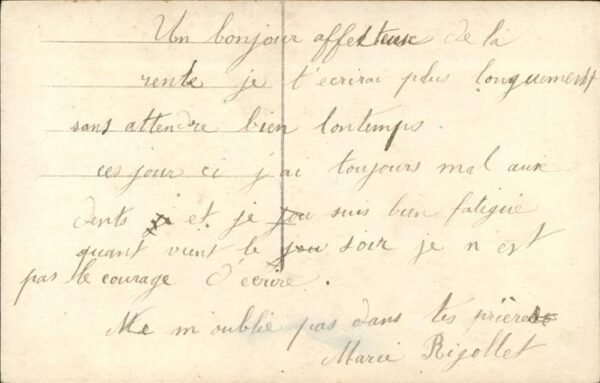 Un bonjour affectueuse de la
rente je t'ecrirai plus longuement
sans attendre bien lontemps
ces jour ci j'ai toujours mal aux
dents et je suis bien fatigué
quant vient le soir je n est
pas le courage d'écrire.
Me m'oublie pas dans tes prières
Marie Rigollet